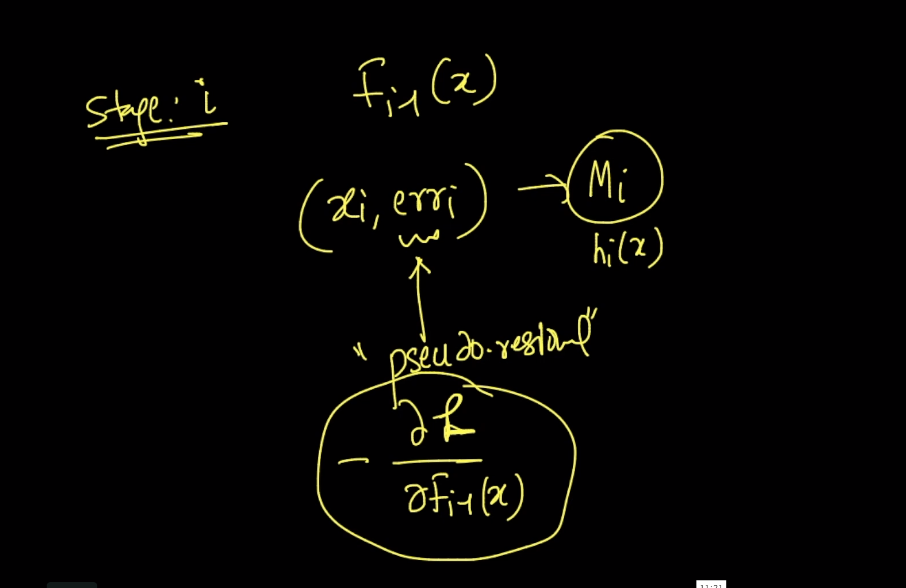 Stage: i
F_{i-1}(x)
(x_i, err_i) → M_i
h_i(x)
"pseudo-residual"
- ∂L / ∂F_{i-1}(x)
11:21